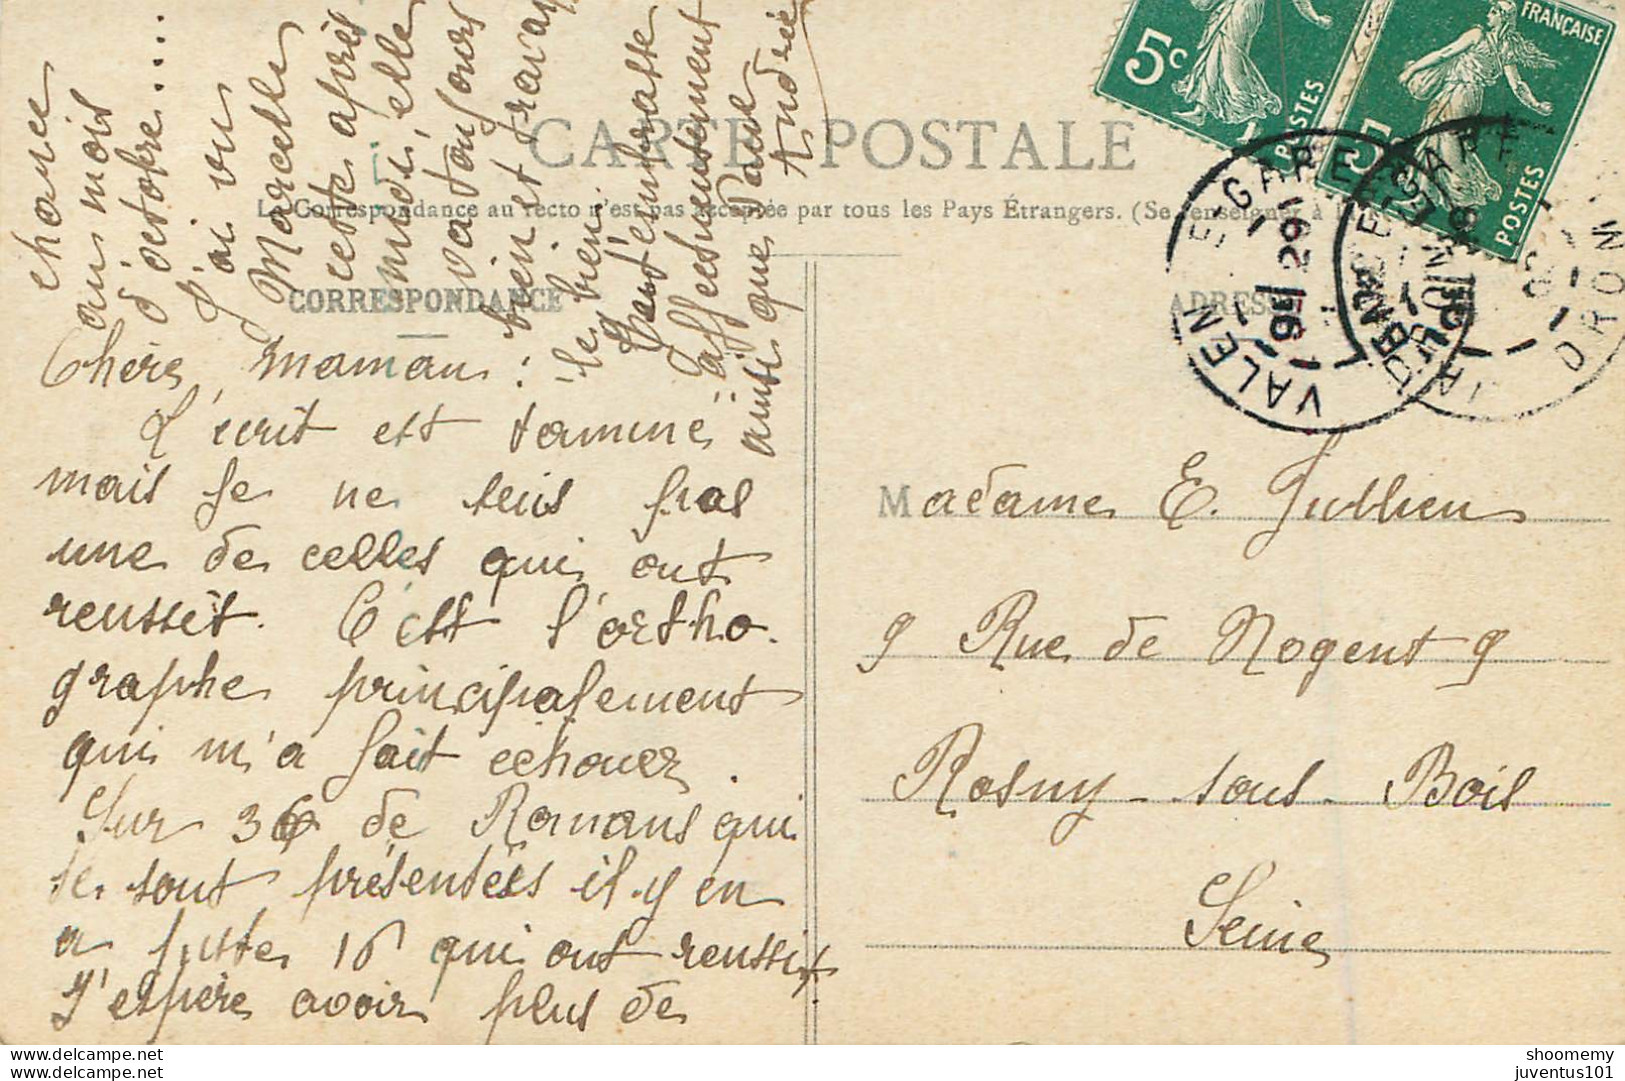 CARTE POSTALE
La Correspondance au recto n'est pas acceptée par tous les Pays Étrangers. (Se renseigner à la
CORRESPONDANCE
ADRESSE
Chère maman :
L'écrit est terminé
mais je ne suis pas
une de celles qui ont
reussit. C'est l'ortho-
graphe principalement
qui m'a fait échouer.
Sur 36 de Romans qui
se sont présentées il y en
a juste 16 qui ont reussit
J'espère avoir plus de
chance
au mois
d'octobre....
J'ai vu
Marcelle
cette après
midi, elle
va toujours
bien et
le bien.
t'embrasse
affectueusement
ainsi que Paule
Andrée
Madame E. Jullien
9 Rue de Nogent 9
Rosny-sous-Bois
Seine
5c
POSTES
FRANÇAISE
5
POSTES
VALENCE-GARE
DROME
delcampe.net
juventus101
shoomemy
juventus101